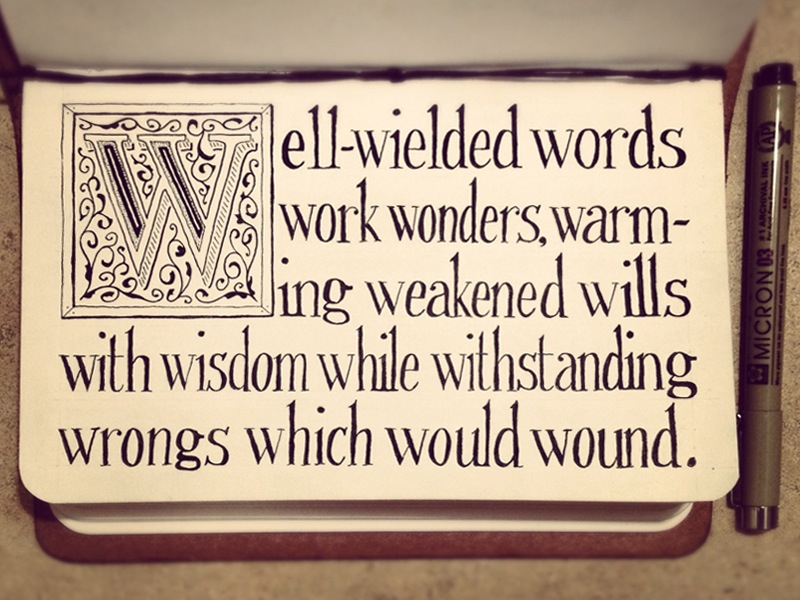 Well-wielded words
work wonders, warm-
ing weakened wills
with wisdom while withstanding
wrongs which would wound.
MICRON 03
#1 ARCHIVAL INK
AP